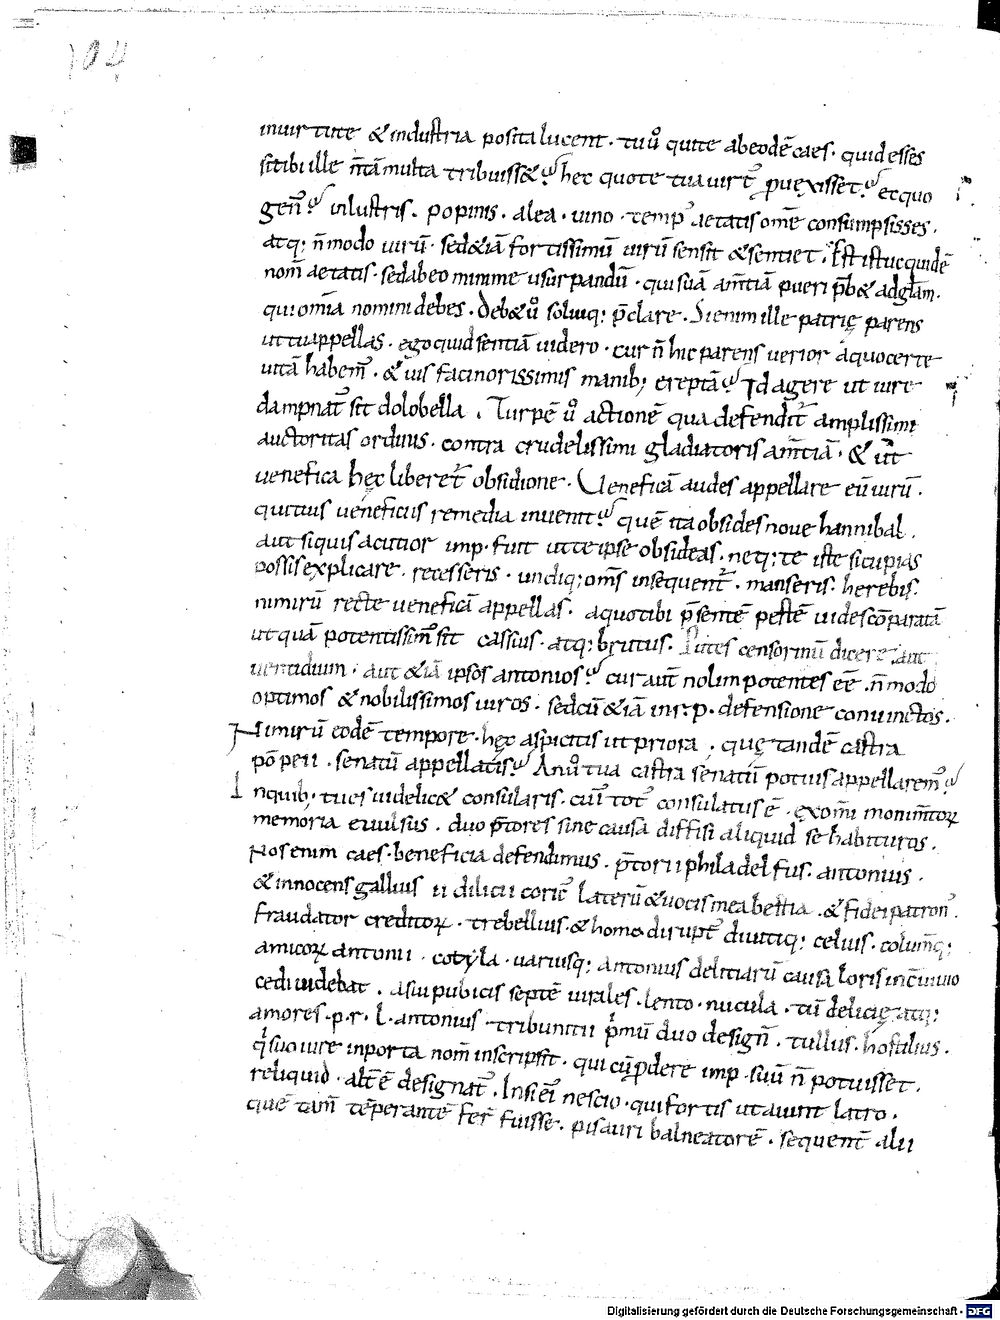 104
inuirtute & industria posita lucent. tu ů quite abeodē caes. quid esses
sitibi ille n̄tā multa tribuiss& hec quote tua uirt̄ puexisset etquo
gen̄ inlustris. popinis. alea. uino. temp aetatis omē consumpsisses.
atq; n̄modo uirū. sed&iā fortissimū uirū sensit &sentiet. Est istuc quidē
nom̄ aetatis. sedabeo minime usurpandū. qui suā am̄tiā pueri p̄b& adglam.
qui omīa nomini debes. Deb&ů soluiq; p̄clare. Sienim ille patrię parens
uttuappellas. ego quid sentiā uidero. cur n̄ hic parens uerior a quo certe
uitā habem̄. & uis facinorissimis manib; ereptā Id agere ut iure
dampnat̄ sit dolobella. Turpē ů actionē qua defendit̄ amplissimi
auctoritas ordinis. contra crudelissimi gladiatoris am̄tiā. & ut̄
uenefica hęc liberet̄ obsidione. Ueneficā audes appellare eū uirū.
qui tuis ueneficiis remedia inuenit quē ita obsides noue hannibal.
aut siquis acutior imp. fuit ut te ipse obsideas. neq; te iste si cupias
possis explicare. recesseris. undiq; om̄s insequent̄. manseris. herebis.
nimirū recte ueneficā appellas. a quo tibi p̄sentē pestē uides cōparatā
ut quā potentissim̄ sit cassius. atq; brutus. Putes censorinū dicere aut
uentidium. aut &iā ipsos antonios cur aut̄ nolim potentes eē. n̄ modo
optimos & nobilissimos uiros. sedcū &iā in r. p. defensione coniunctos.
Nimirū eodē tempore. hęc aspicitis ut priora. quę tandē castra
pōpeii. senatū appellatis An ů tua castra senatū potuis appellarem̄
Inquib; tu es uidelic& consularis. cui tot̄ consulatus ē. exom̄i monim̄torꝝ
memoria euulsus. duo p̄tores sine causa diffisi aliquid se habituros.
Nos enim caes. beneficia defendimus. p̄torii philadelfus. antonius.
& innocens gallius ii dilicii coric̄ laterū & uocis mea bestia. & fidei patron̄.
fraudator creditorꝝ. trebellius. & homo dirupt̄ diuitiq; celius. colum̄q;
amicorꝝ antonii. cotyla. uariusq; antonius delitiarū causa loris in cīuiuio
cedi iudebat. asui pubicis septē uirales. lento. nucula. tū delicię atq;
amores. p. r. l. antonius. tribunitii pmū duo design̄. tullus. hostilius.
q suo iure inporta nom̄ inscripsit. qui cū pdere imp. suū n̄ potuisset.
reliquid. alt̄ ē designat̄. Insieī nescio. qui fortis ut aiunt latro.
quē tam̄ tēperantē fer̄ fuisse. pisauri balneatorē. sequent̄ alii
Digitalisierung gefördert durch die Deutsche Forschungsgemeinschaft - DFG